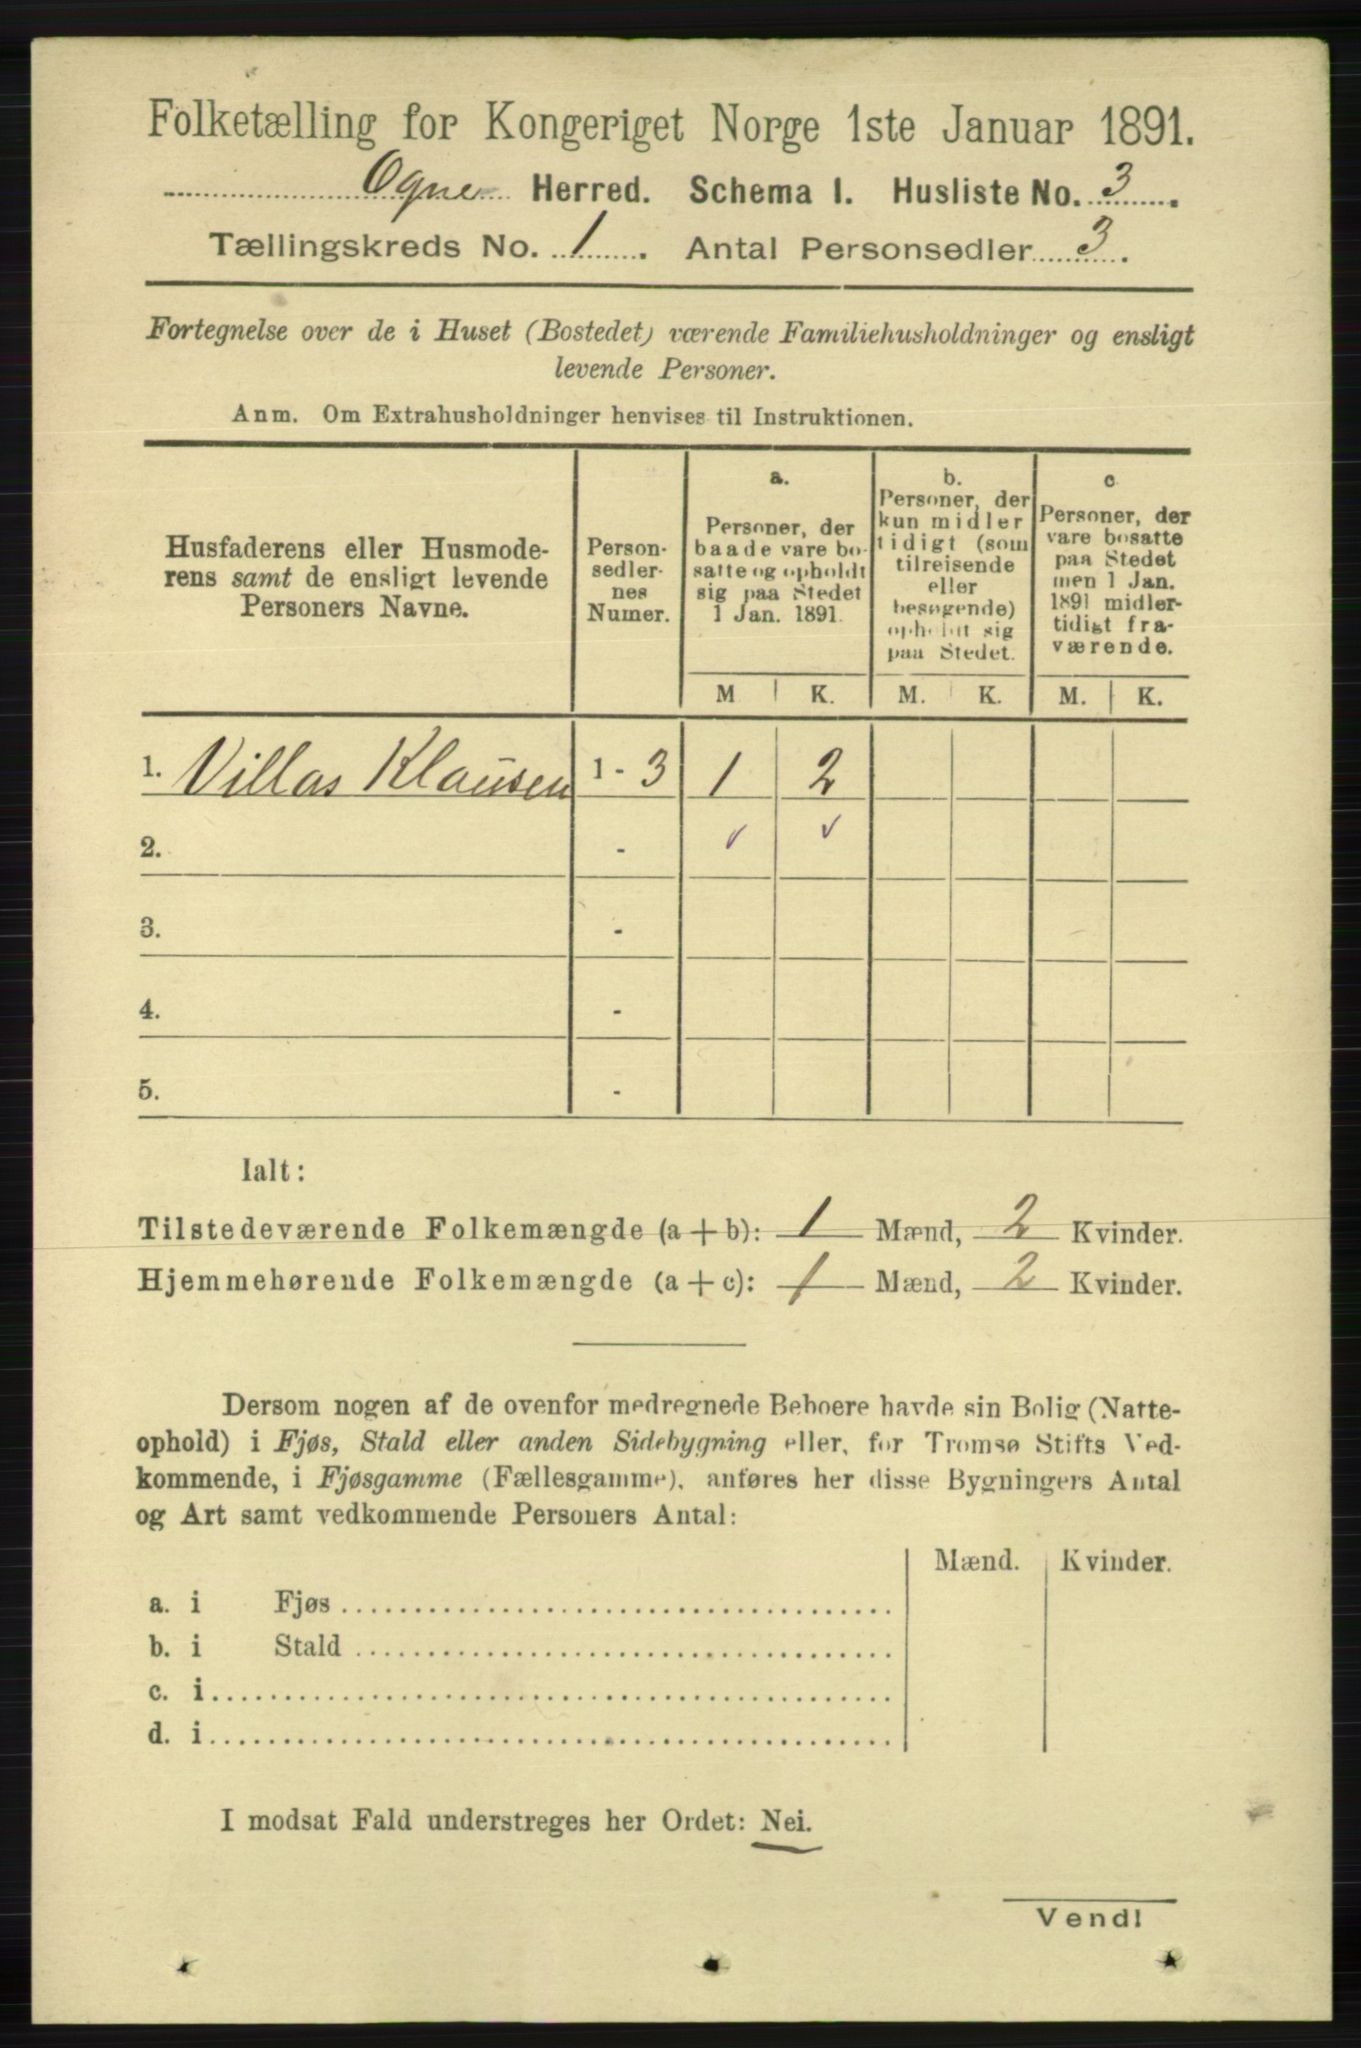 Folketælling for Kongeriget Norge 1ste Januar 1891.
Ogne Herred. Schema 1. Husliste No. 3.
Tællingskreds No. 1. Antal Personsedler 3.
Fortegnelse over de i Huset (Bostedet) værende Familiehusholdninger og ensligt
levende Personer.
Anm. Om Extrahusholdninger henvises til Instruktionen.
Husfaderens eller Husmode-
rens samt de ensligt levende
Personers Navne.
Person-
sedler-
nes
Numer.
a.
Personer, der
baade vare bo-
satte og opholdt
sig paa Stedet
1 Jan. 1891.
M K.
b.
Personer, der
kun midler
tidigt (som
tilreisende
eller
besøgende)
opholdt sig
paa Stedet.
M. K.
c
Personer, der
vare bosatte
paa Stedet
men 1 Jan.
1891 midler-
tidigt fra-
værende.
M. K.
1. Villas Klausen 1 - 3 1 2
2. - ✓ ✓
3. -
4. -
5. -
Ialt:
Tilstedeværende Folkemængde (a + b): 1 Mænd, 2 Kvinder.
Hjemmehørende Folkemængde (a + c): 1 Mænd, 2 Kvinder.
Dersom nogen af de ovenfor medregnede Beboere havde sin Bolig (Natte-
ophold) i Fjøs, Stald eller anden Sidebygning eller, for Tromsø Stifts Ved-
kommende, i Fjøsgamme (Fællesgamme), anføres her disse Bygningers Antal
og Art samt vedkommende Personers Antal:
Mænd. Kvinder.
a. i Fjøs
b. i Stald
c. i
d. i
I modsat Fald understreges her Ordet: Nei.
Vendl